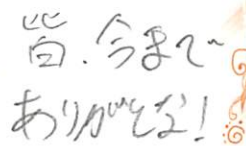 皆、今まで
ありがとな!